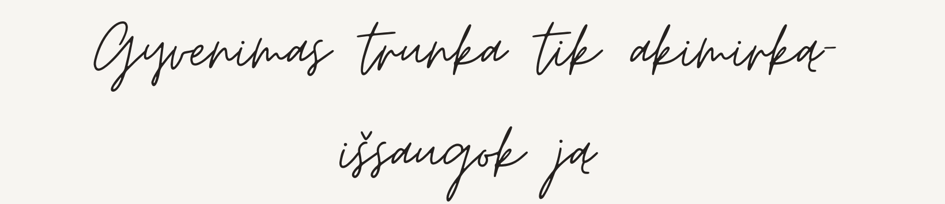 Gyvenimas trunka tik akimirką-
išsaugok ją